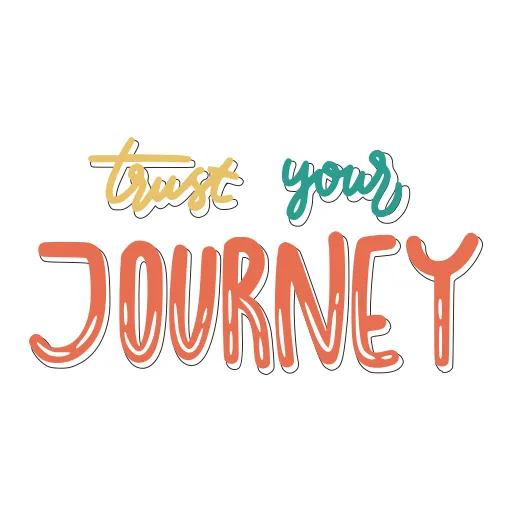 trust your
JOURNEY